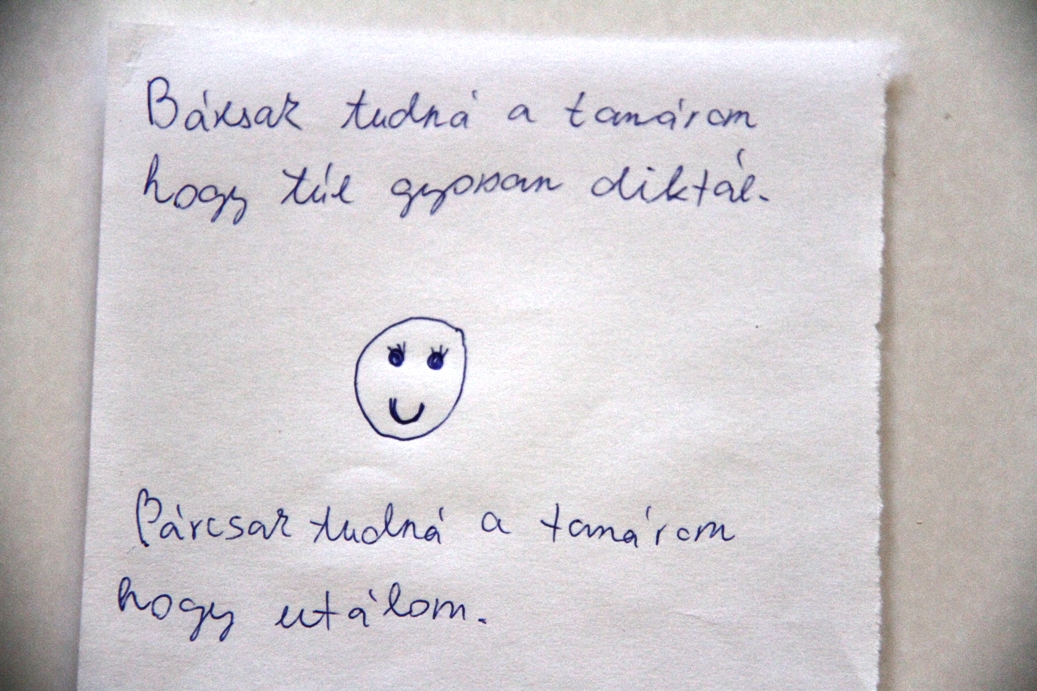 Bárcsak tudná a tanárom
hogy túl gyorsan diktál.
Bárcsak tudná a tanárom
hogy utálom.